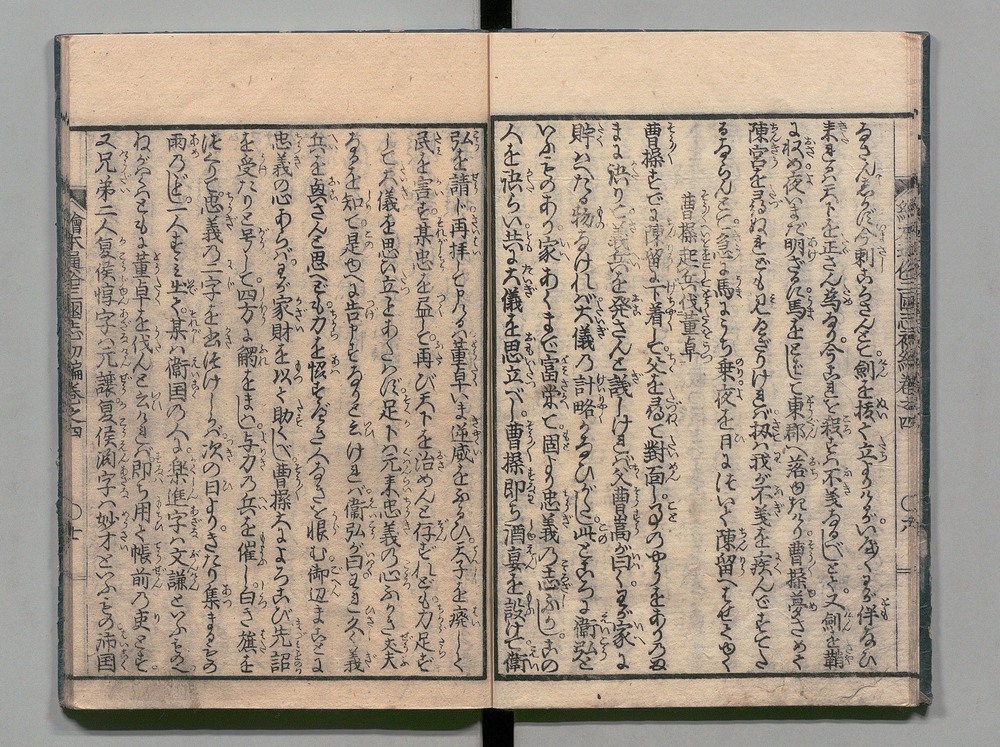 るさんならバ今刺ころさんとて劍を抜て立よりけるがいなくまづ伴なひ
来るハ天下を正さん為なり今これを殺さバ不義なるべしとて又劍を鞘
に収め夜いまだ明ざるに馬をとばせて東郡へ落ゆきけり曹操夢さめて
陳宮を尋ぬれども見えざりければ扨ハ我が不義を疾んですてた
るならんとて急に馬にうち乗夜を日についで陳留へはせてゆく
曹操起兵伐董卓
曹操すでに陳留に下着して父を尋ねて對面し事のゆゑをありのまゝ
まに語りて義兵を発さんと議しければ父曹嵩が曰くわが家に
貯ハへたる物なければ大儀の計略かなひがたし此ところに衛弘と
いふものあり家あくまで富栄て固より忠義の志ふかしこの
人を語らい共に大儀を思立べし曹操即ち酒宴を設けて衛
弘を請じ再拝して申けるハ董卓いま逆威をふるひ天子を廃しく
民を害す某忠を益して再び天下を治めんと存ずれども力足ず
して大儀を思い立ことあたハず足下ハ元来忠義の心ふかき大丈夫
なるを知て是ゆへに告申すなりと云ければ衛弘が曰われ久く義
兵を興さんと思へども力を協すべき人なきを恨む御辺まことに
忠義の心あらバわが家財を以て助くべし曹操大によろこび先詔
を受たりと号して四方に触をまハし与力の兵を催し白き旗を
つくりて忠義の二字を書つけしかバ次の日よりきたり集まるもの
雨のごとし一人すゝミ出て某ハ衛国の人にて楽進字ハ文謙といふもの
ねがハくハともに董卓を伐んと云ければ即ち用て帳前の吏とす
又兄弟二人夏侯惇字ハ元譲夏侯渕字ハ妙才といふもの沛国
繪本通俗三國志初編巻之四